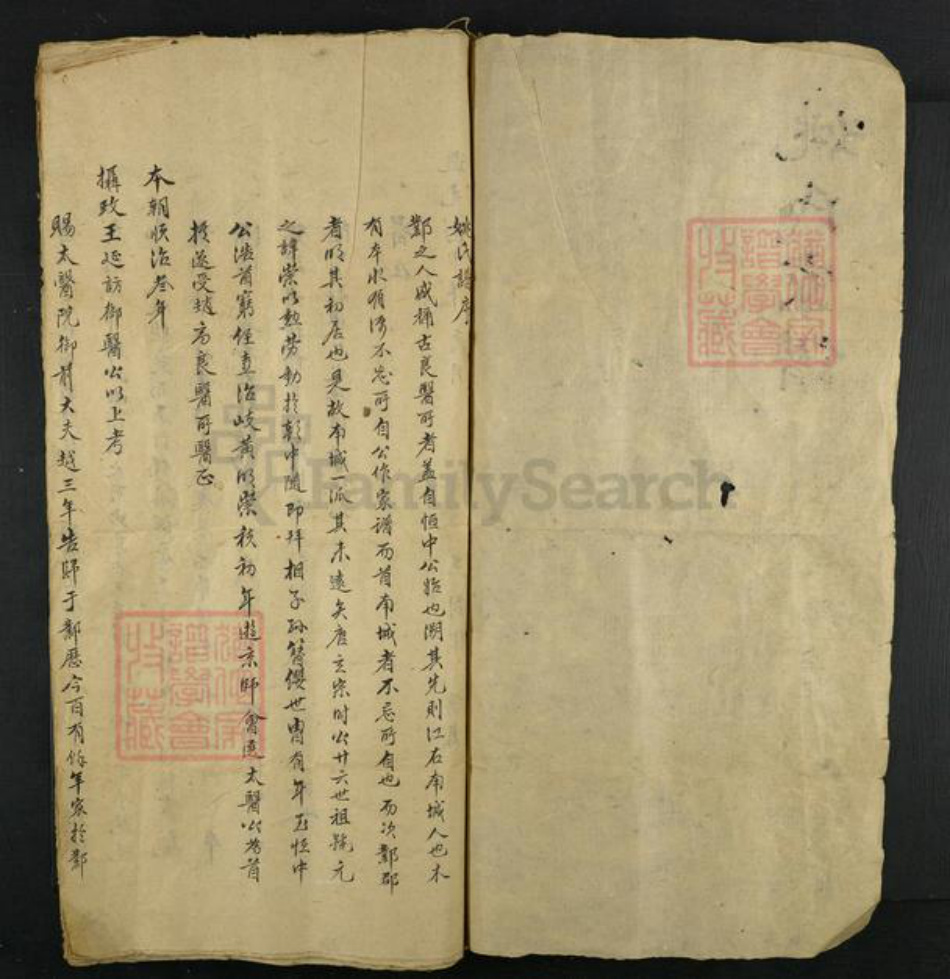 姚氏譜序
鄞之人咸稱古良醫所者蓋自恒中公始也溯其先則江右南城人也木
有本水有源不忘所自公作家譜而首南城者不忘所自也而次鄞郡
者明其初居也見故南城一派其來遠矣唐玄宗時公廿六世祖諱元
之諱崇以勲勞動於朝中隨即拜相子孫簪纓世胄有年至恒中
公浩首窮經直治岐黃明崇禎初年遊京師會選太醫公為首
授遂受趙府良醫所醫正
本朝順治叁年
攝政王延訪御醫公以上考
賜太醫院御前大夫越三年告歸于鄞歷今百有餘年家於鄞
姚氏
譜學會
收藏
譜學會
收藏
FamilySearch